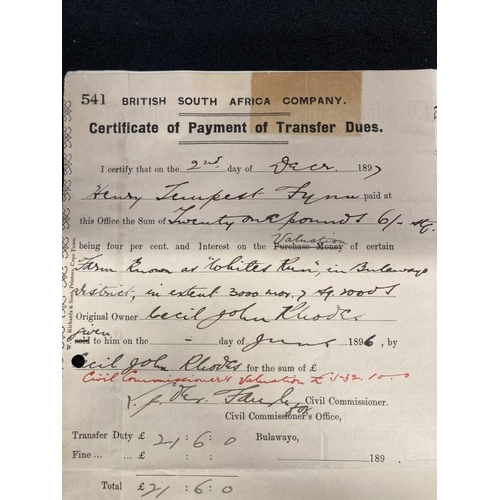 541 BRITISH SOUTH AFRICA COMPANY.
Certificate of Payment of Transfer Dues.
I certify that on the 2nd day of Decr 1897
Henry Tempest Fynn paid at
this Office the Sum of Twenty one pounds 6/- stg.
Valuation
being four per cent. and Interest on the Purchase Money of certain
Farm Known as "Whites Run", in Bulawayo
district, in extent 3000 mor. & Sq. roods
Original Owner Cecil John Rhodes
given
sold to him on the - day of June 1896, by
Cecil John Rhodes for the sum of £
Civil Commissioner's Valuation £532.10.0
Civil Commissioner.
for
Civil Commissioner's Office,
Transfer Duty £ 21 : 6 : 0 Bulawayo,
Fine ... ... £ : : 189 .
Total £ 21 : 6 : 0
Richards & Sons, Printers, Cape Town.